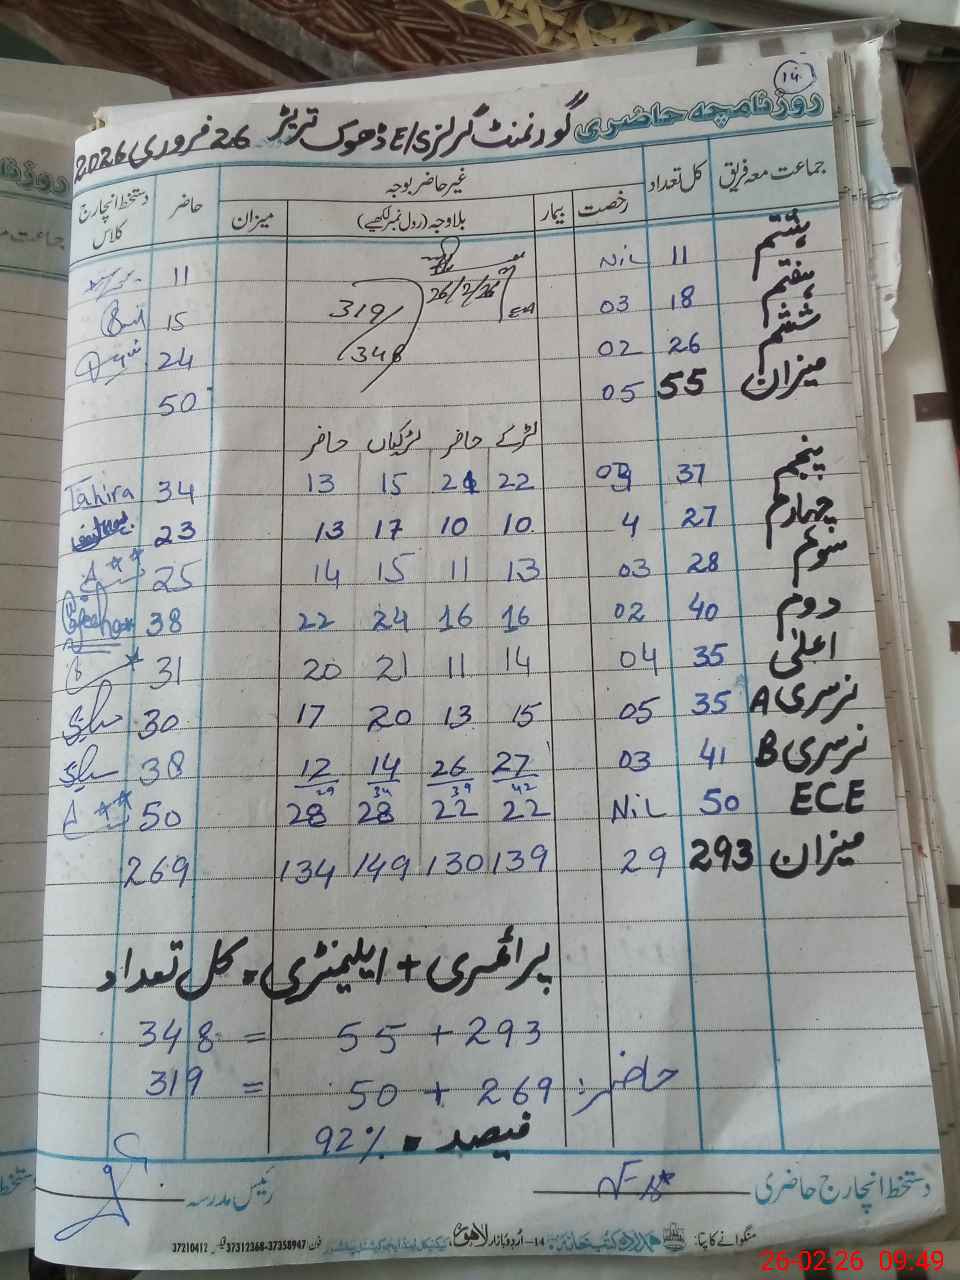 14
روزنامچہ حاضری گورنمنٹ گرلز E/S ڈھوک تریڑ 26 فروری 2026
جماعت معہ فریق کل تعداد غیر حاضر بوجہ حاضر دستخط انچارج کلاس
رخصت بیمار بلاوجہ (رول نمبر لکھیے) میزان
ہشتم 11 Nil 11
26/2/26
ہفتم 18 03 319/ 15
ششم 26 02 348 24
میزان 55 05 50
لڑکے حاضر لڑکیاں حاضر
پنجم 37 03 22 21 15 13 34 Tahira
چہارم 27 4 10 10 17 13 23
سوئم 28 03 13 11 15 14 25
دوم 40 02 16 16 24 22 38
اعلیٰ 35 04 14 11 21 20 31
نرسری A 35 05 15 13 20 17 30
نرسری B 41 03 27 26 14 12 38
42 39 34 29
ECE 50 Nil 22 22 28 28 50
میزان 293 29 139 130 149 134 269
پرائمری + ایلیمنٹری = کل تعداد
293 + 55 = 348
حاضر: 269 + 50 = 319
فیصد = 92%
دستخط انچارج حاضری رئیس مدرسہ
منگوانے کا پتا: ہمدرد کتب خانہ 14- اُردو بازار لاہور فون 37358947-37312368 37210412
26-02-26 09:49